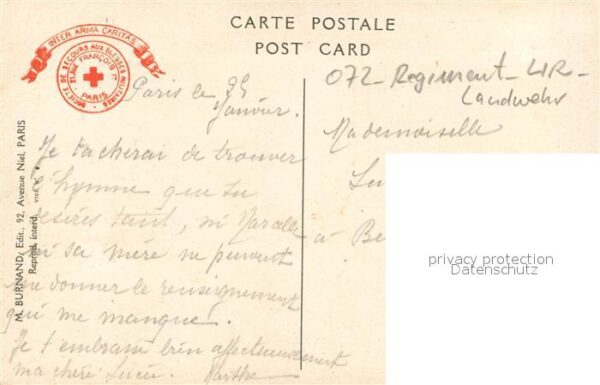 CARTE POSTALE
POST CARD
INTER ARMA CARITAS
SOCIÉTÉ DE SECOURS AUX BLESSÉS MILITAIRES
PARIS
M. BURNAND, Edit., 92, Avenue Niel, PARIS
Reprod. interd.
Paris le 25
Janvier.
Je tacherai de trouver
l'hymne que tu
désires tant, ni Marcelle
ni sa mère ne peuvent
me donner le renseignement
qui me manque.
Je t'embrasse bien affectueusement
ma chère Lucie. Marthe
072-Regiment-LIR-
Landwehr
Mademoiselle
Lu
à Be
privacy protection
Datenschutz